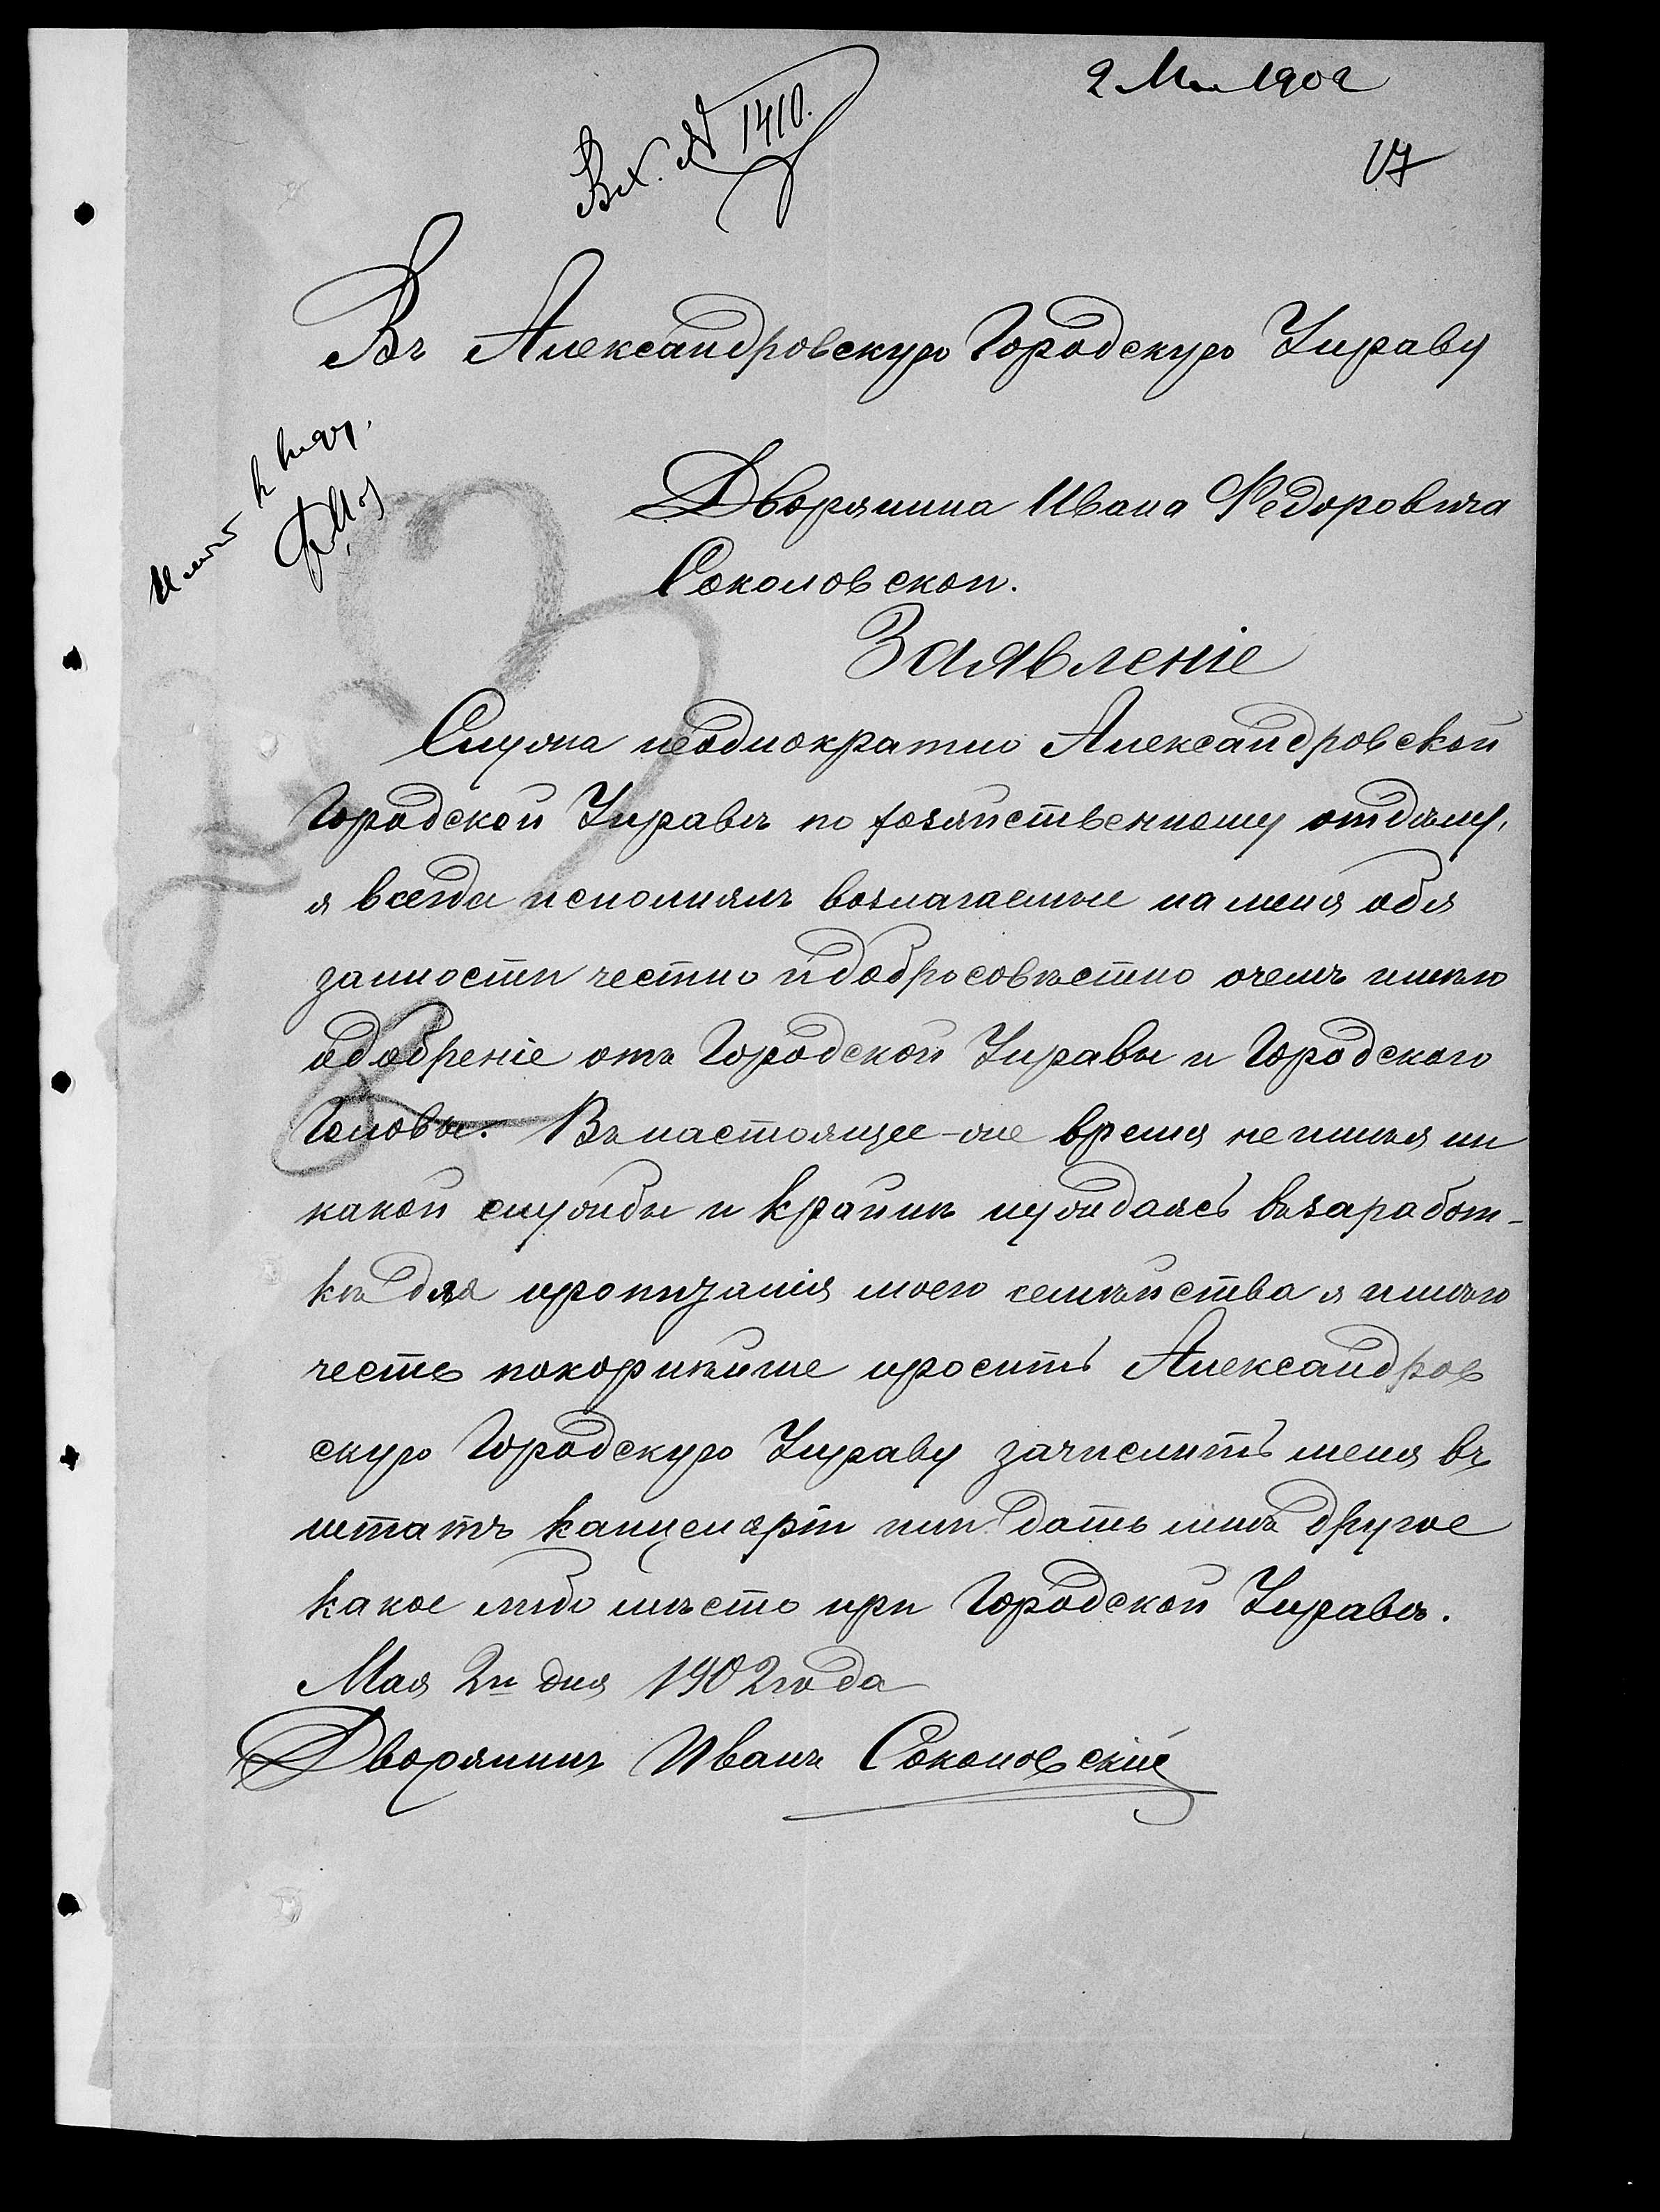 2 Мая 1902
Вх. № 1410.
17
Въ Александровскую Городскую Управу
Дворянина Ивана Федоровича
Соколовскаго.
Заявленіе
Служа неоднократно Александровской
Городской Управѣ по хозяйственному отдѣлу,
я всегда исполнялъ возлагаемые на меня обя
занности честно и добросовѣстно о чемъ имѣю
одобреніе отъ Городской Управы и Городского
Головы. — Въ настоящее-же время не имѣя ни
какой службы и крайнѣ нуждаясь въ заработ-
кѣ для пропитанія моего семѣйства я имѣю
честь покорнѣйше просить Александров
скую Городскую Управу зачислить меня въ
штатъ канцеляріи или дать мнѣ другое
какое либо мѣсто при Городской Управѣ.
Мая 2го дня 1902 года
Дворянинъ Иванъ Соколовскій